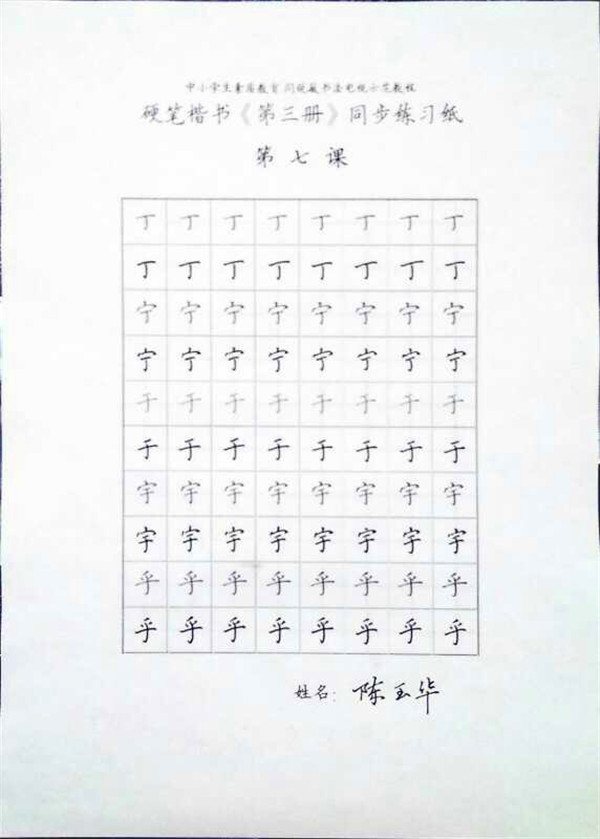 中小学生素质教育闫锐敏书法电视示范教程
硬笔楷书《第三册》同步练习纸
第七课
丁丁丁丁丁丁丁丁
丁丁丁丁丁丁丁丁
宁宁宁宁宁宁宁宁
宁宁宁宁宁宁宁宁
于于于于于于于于
于于于于于于于于
宇宇宇宇宇宇宇宇
宇宇宇宇宇宇宇宇
乎乎乎乎乎乎乎乎
乎乎乎乎乎乎乎乎
姓名：陈玉华